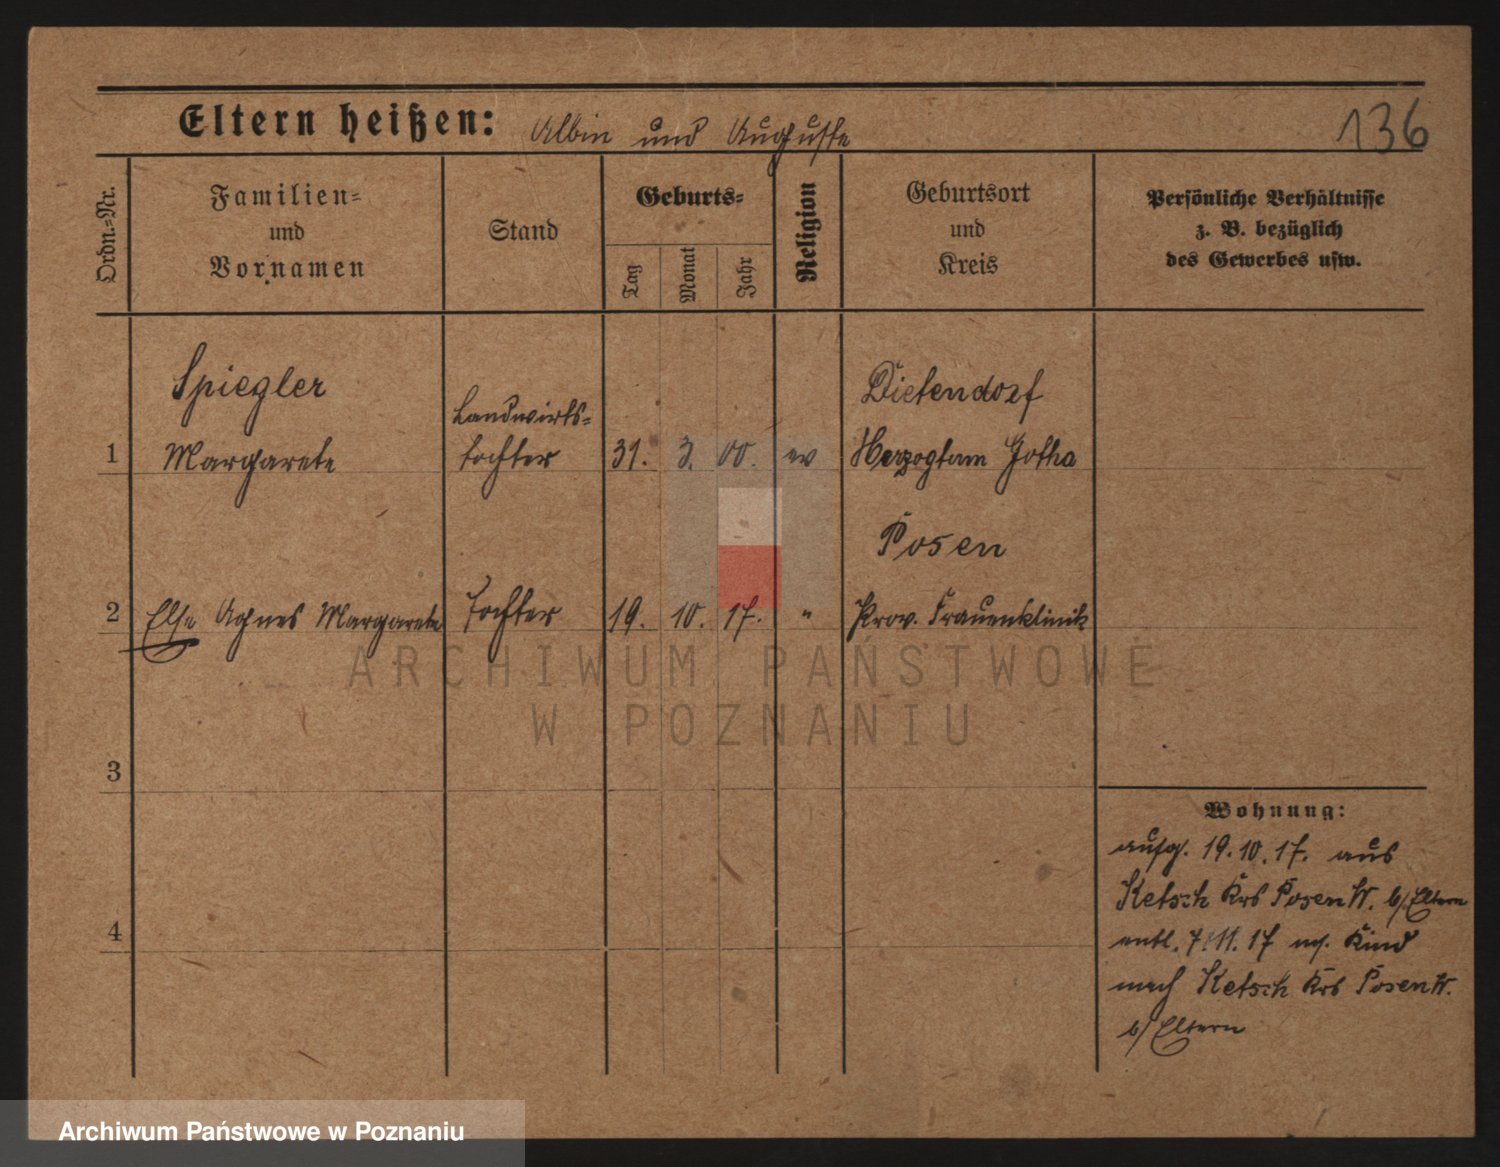 Eltern heißen: Albin und Auguste
136
Ordn.-Nr.
Familien-
und
Vornamen
Stand
Geburts-
Tag
Monat
Jahr
Religion
Geburtsort
und
Kreis
Persönliche Verhältnisse
z. B. bezüglich
des Gewerbes usw.
Spiegler
Landwirts-
Dietendorf
1 Margarete tochter 31. 3. 00. ev Herzogtum Gotha
Posen
2 Else Agnes Margarete Tochter 19. 10. 17. " Prov. Frauenklinik
ARCHIWUM PAŃSTWOWE
W POZNANIU
3
Wohnung:
aufg. 19.10.17. aus
Ketsch Krs Posen W. b/Eltern
4
entl. 7.11.17 m. Kind
nach Ketsch Krs Posen W.
b/Eltern
Archiwum Państwowe w Poznaniu